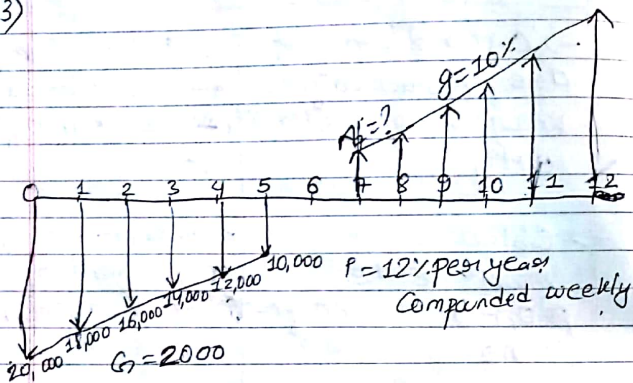 3)
g=10%
A₁=?
0 1 2 3 4 5 6 7 8 9 10 11 1 12
20,000 18,000 16,000 14,000 12,000 10,000
P=12% per year
Compounded weekly
G=2000